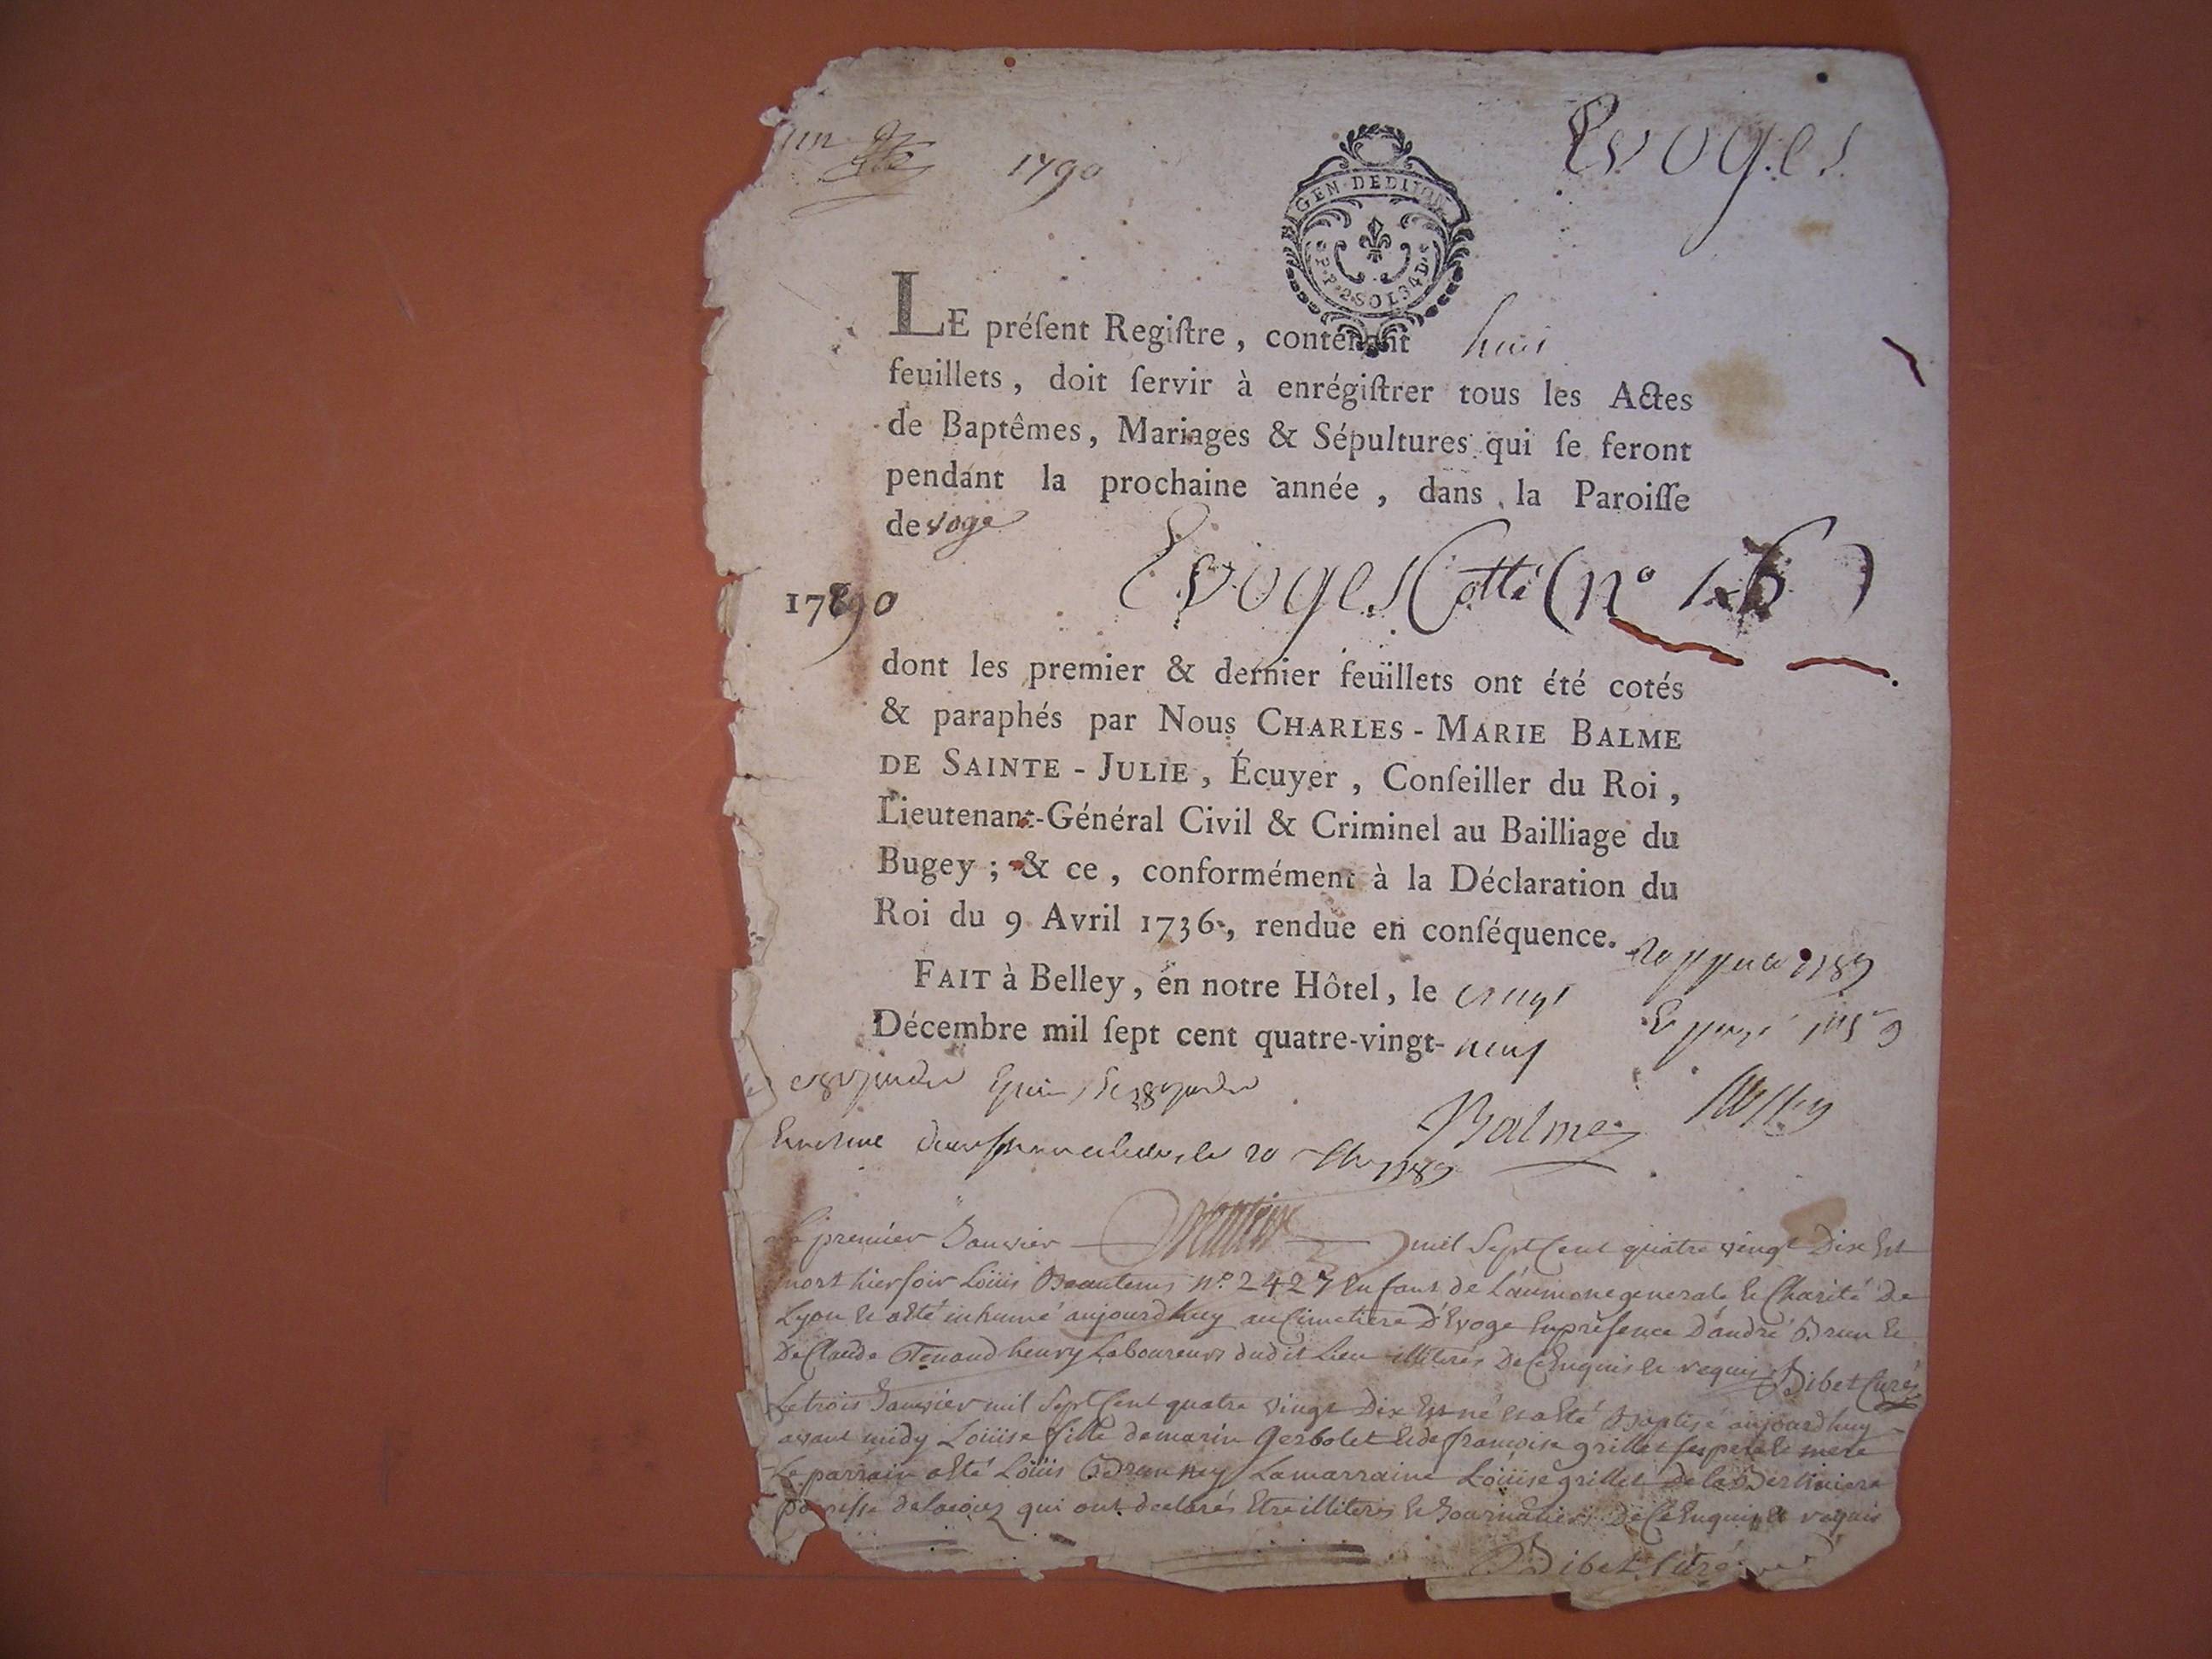 un 1790 Evoges
GEN DE DIJON
2 SOL 4 D
LE préſent Regiſtre, contenant huit
feuillets, doit ſervir à enrégiſtrer tous les Actes
de Baptêmes, Mariages & Sépultures qui ſe feront
pendant la prochaine année, dans la Paroiſſe
de voge
Evoges Cotté (n°
1790
dont les premier & dernier feuillets ont été cotés
& paraphés par Nous CHARLES-MARIE BALME
DE SAINTE-JULIE, Écuyer, Conſeiller du Roi,
Lieutenant-Général Civil & Criminel au Bailliage du
Bugey; & ce, conformément à la Déclaration du
Roi du 9 Avril 1736, rendue en conſéquence.
FAIT à Belley, en notre Hôtel, le vingt
Décembre mil ſept cent quatre-vingt-neuf
Balme
le 20 1789
Le premier Janvier mil Sept Cent quatre vingt Dix Est
mort hier soir Loüis n° 2427 Enfant de L'aumone generale Et Charité De
Lyon Et a Eté inhumé aujourdhuy au Cimetiere D'Evoge En présence D'andré Brun Et
De Claude Tenand henry Laboureurs dudit Lieu illiterés De Ce Enquis Et requis Dibet Curé
Le trois Janvier mil Sept Cent quatre vingt Dix Est né Et a Eté Baptisé aujourdhuy
avant midy Loüise fille de marin Gerbolet Et de francoise grillet ses pere Et mere
Le parrain a Eté Loüis La marraine Loüise grillet De la
paroisse de qui ont declarés Etre illiterés Et Journaliers De Ce Enquis Et requis
Dibet Curé